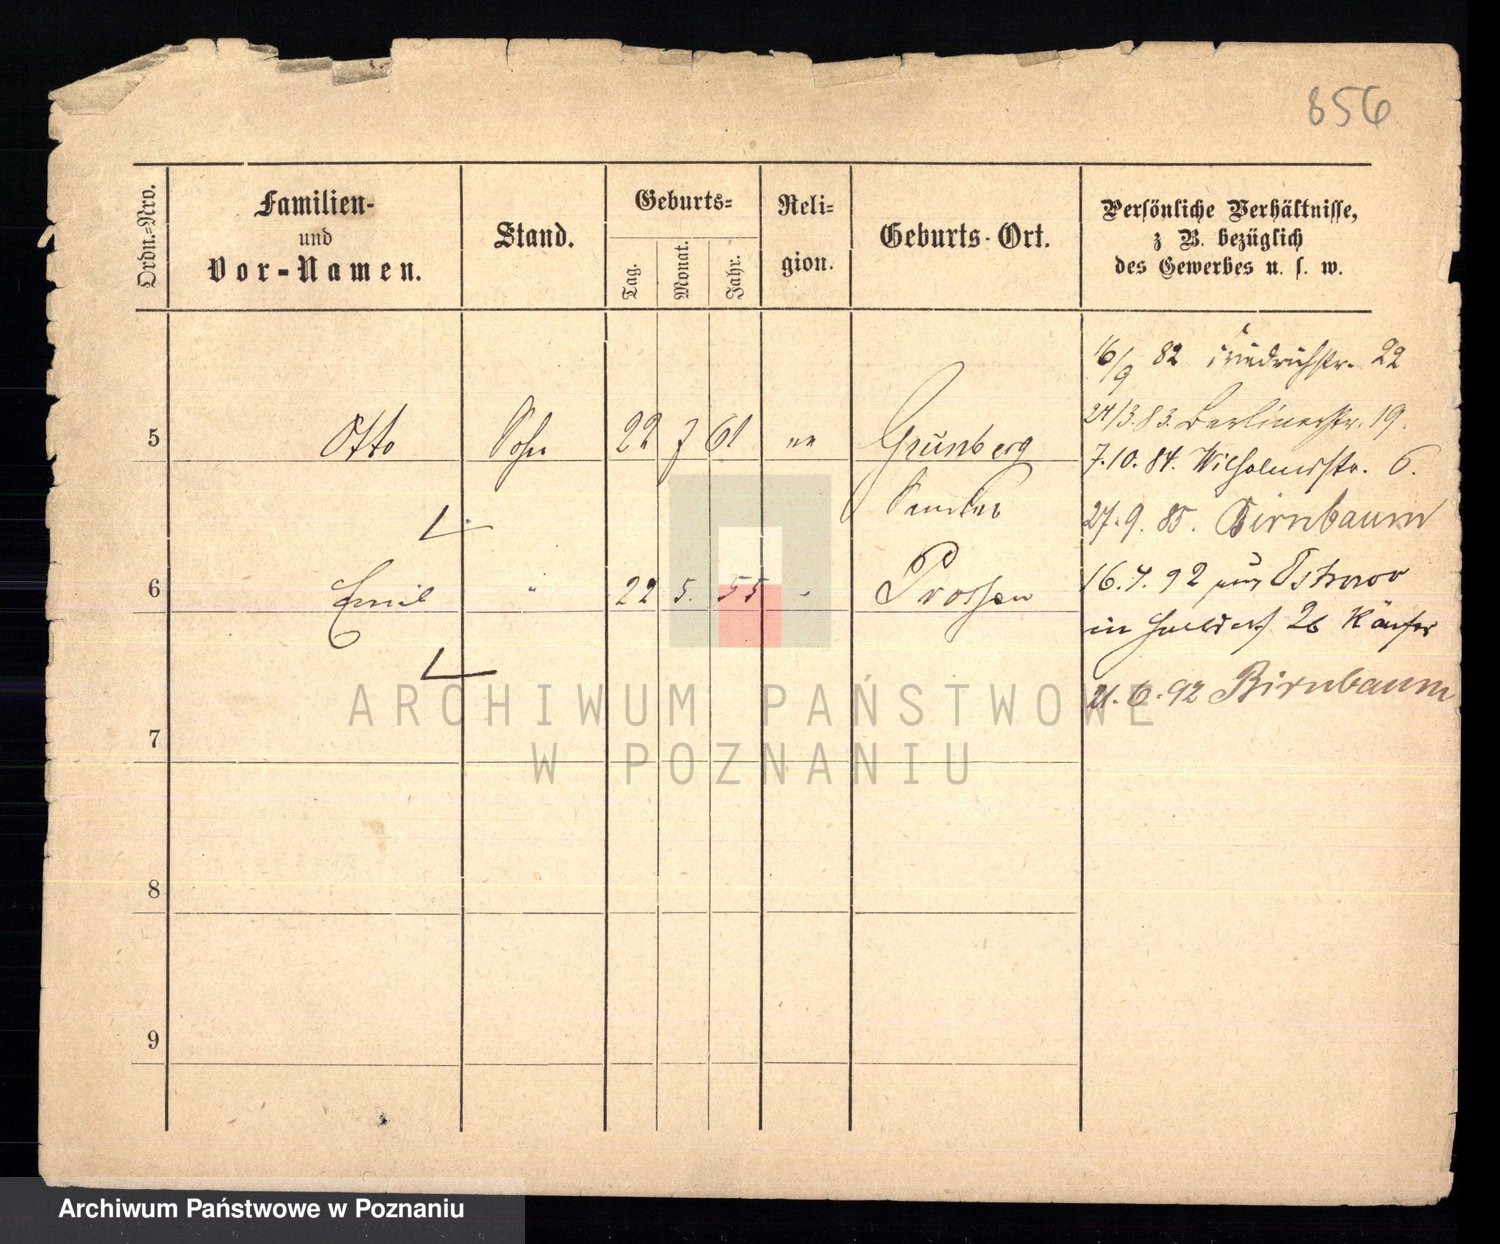 856
Ordn.-Nro.
Familien-
und
Vor-Namen.
Stand.
Geburts-
Tag.
Monat.
Jahr.
Reli-
gion.
Geburts-Ort.
Persönliche Verhältnisse,
z B. bezüglich
des Gewerbes u. s. w.
16/9 82 Friedrichstr. 22
24/3.83. Berlinerstr. 19.
5 Otto Sohn 22 7 61 Grünberg
7.10.84. Wilhelmstr. 6.
Samter
27.9.85. Birnbaum
6 Emil " 22 5. 55 "
16.4.92 Ostrowo
in 26
21.6.92 Birnbaum
7
8
9
ARCHIWUM PAŃSTWOWE
W POZNANIU
Archiwum Państwowe w Poznaniu